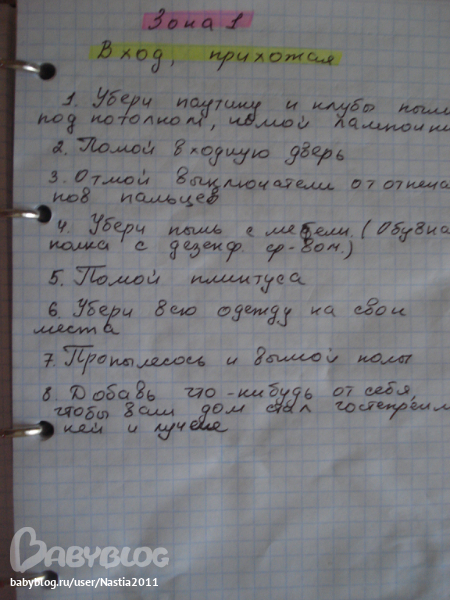 Зона 1
Вход, прихожая
1. Убери паутину и клубы пыли
под потолком, помой лампочки
2. Помой входную дверь
3. Отмой выключатели от отпеча
ков пальцев
4. Убери пыль с мебели. (Обувна
полка с дезенф. ср-вом.)
5. Помой плинтуса
6. Убери всю одежду на свои
места
7. Пропылесось и вымой полы
8. Добавь что-нибудь от себя,
чтобы ваш дом стал гостепреим
ней и лучше
BABYBLOG
babyblog.ru/user/Nastia2011